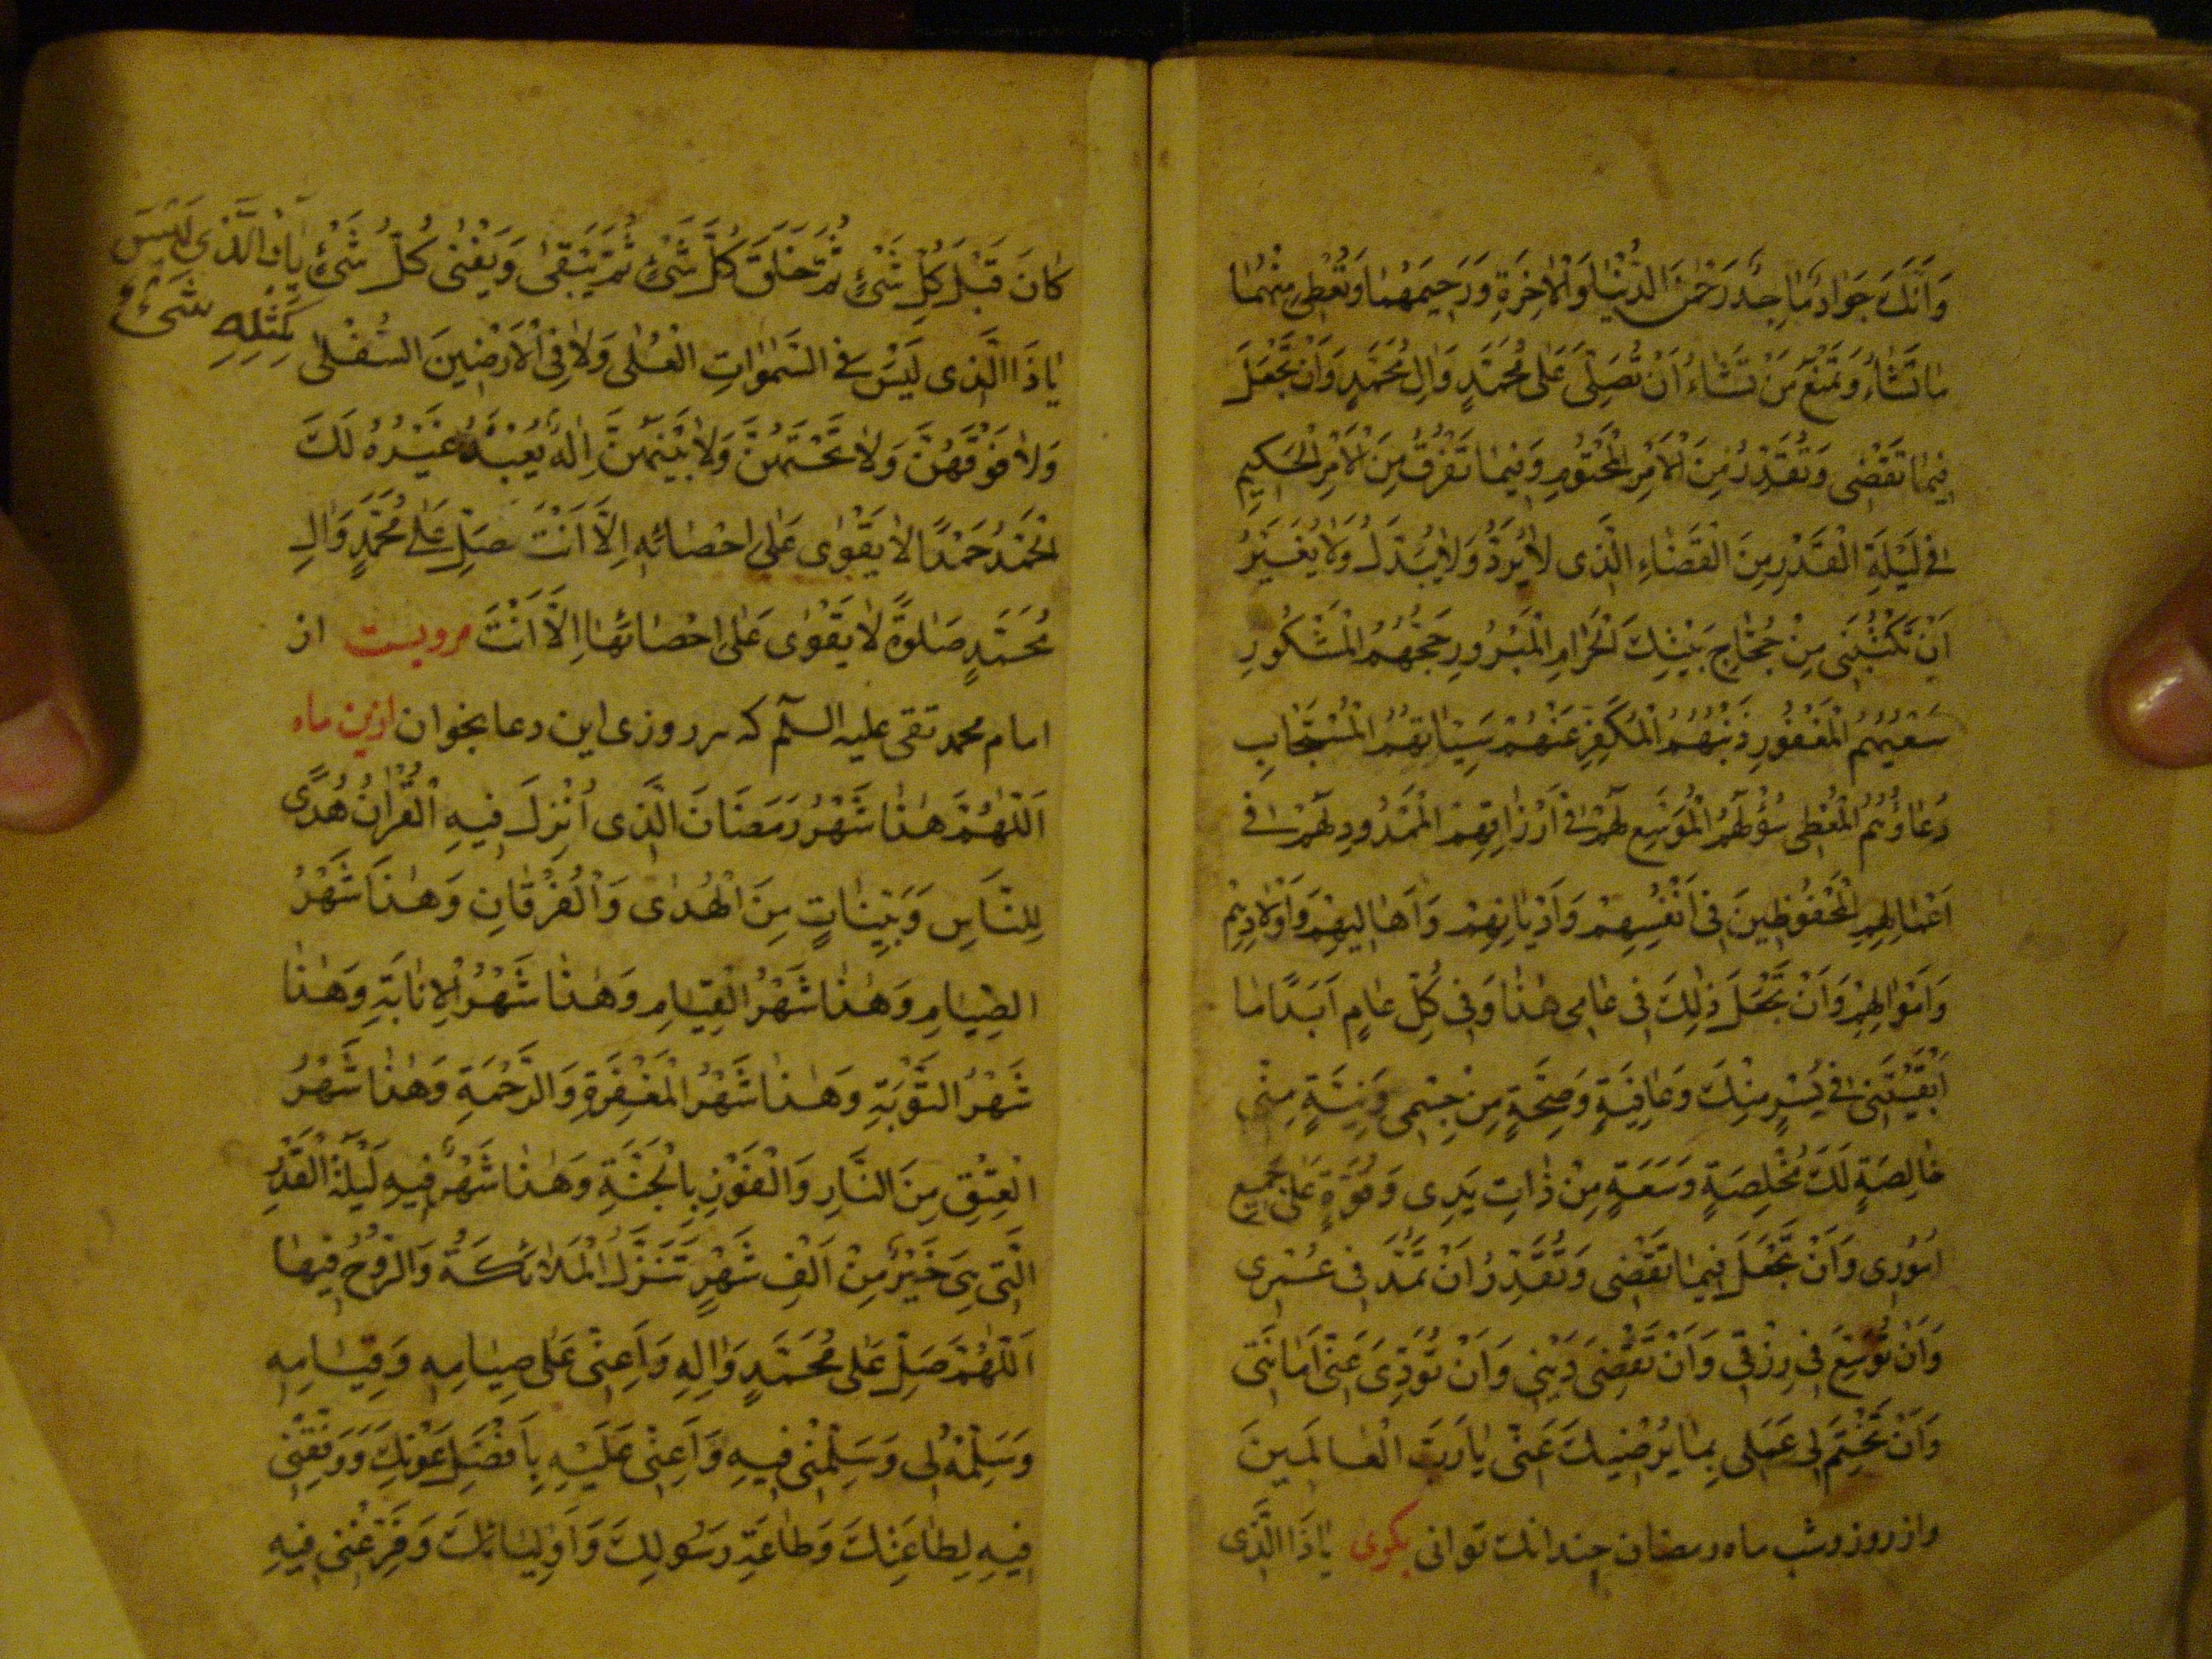 وَاَنَّكَ جَوَادٌ مَاجِدٌ رَحْمٰنَ الدُّنْيَا وَالْاٰخِرَةِ وَرَحِيمَهُمَا وَتُعْطِي مِنْهُمَا
مَا تَشَاءُ وَتَمْنَعُ مَنْ تَشَاءُ اَنْ تُصَلِّىَ عَلٰى مُحَمَّدٍ وَاٰلِ مُحَمَّدٍ وَاَنْ تَجْعَلَ
فِيمَا تَقْضِى وَتُقَدِّرُ مِنَ الْاَمْرِ الْمَحْتُومِ وَفِيمَا تَفْرُقُ مِنَ الْاَمْرِ الْحَكِيمِ
فِى لَيْلَةِ الْقَدْرِ مِنَ الْقَضَاءِ الَّذِى لَا يُرَدُّ وَلَا يُبَدَّلُ وَلَا يُغَيَّرُ
اَنْ تَكْتُبَنِى مِنْ حُجَّاجِ بَيْتِكَ الْحَرَامِ الْمَبْرُورِ حَجُّهُمُ الْمَشْكُورِ
سَعْيُهُمُ الْمَغْفُورِ ذَنْبُهُمُ الْمُكَفَّرِ عَنْهُمْ سَيِّئَاتُهُمُ الْمُسْتَجَابِ
دُعَاؤُهُمُ الْمُعْطٰى سُؤْلَهُمُ الْمُوَسَّعِ لَهُمْ فِى اَرْزَاقِهِمُ الْمَمْدُودِ لَهُمْ فِى
اَعْمَالِهِمِ الْمَحْفُوظِينَ فِى اَنْفُسِهِمْ وَاَدْيَانِهِمْ وَاَهَالِيهِمْ وَاَوْلَادِهِمْ
وَاَمْوَالِهِمْ وَاَنْ تَجْعَلَ ذٰلِكَ فِى عَامِى هٰذَا وَفِى كُلِّ عَامٍ اَبَدًا مَا
اَبْقَيْتَنِى فِى يُسْرٍ مِنْكَ وَعَافِيَةٍ وَصِحَّةٍ مِنْ جِسْمِى وَنِيَّةٍ مِنِّى
خَالِصَةٍ لَكَ مُخْلِصَةٍ وَسَعَةٍ مِنْ ذَاتِ يَدِى وَقُوَّةٍ عَلٰى جَمِيعِ
اُمُورِى وَاَنْ تَجْعَلَ فِيمَا تَقْضِى وَتُقَدِّرُ اَنْ تَمُدَّ فِى عُمْرِى
وَاَنْ تُوَسِّعَ فِى رِزْقِى وَاَنْ تَقْضِىَ دَيْنِى وَاَنْ تُؤَدِّىَ عَنِّى اَمَانَتِى
وَاَنْ تَخْتِمَ لِى عَمَلِى بِمَا يُرْضِيكَ عَنِّى يَا رَبَّ الْعَالَمِينَ
و از روز و شب ماه رمضان چندانك توانى بكوى يَا ذَا الَّذِى
كَانَ قَبْلَ كُلِّ شَىْءٍ ثُمَّ خَلَقَ كُلَّ شَىْءٍ ثُمَّ يَبْقٰى وَيَفْنٰى كُلُّ شَىْءٍ يَا ذَا الَّذِى لَيْسَ
كَمِثْلِهِ شَىْءٌ
يَا ذَا الَّذِى لَيْسَ فِى السَّمٰوَاتِ الْعُلٰى وَلَا فِى الْاَرَضِينَ السُّفْلٰى
وَلَا فَوْقَهُنَّ وَلَا تَحْتَهُنَّ وَلَا بَيْنَهُنَّ اِلٰهٌ يُعْبَدُ غَيْرُهُ لَكَ
الْحَمْدُ حَمْدًا لَا يَقْوٰى عَلٰى اِحْصَائِهِ اِلَّا اَنْتَ صَلِّ عَلٰى مُحَمَّدٍ وَاٰلِ
مُحَمَّدٍ صَلٰوةً لَا يَقْوٰى عَلٰى اِحْصَائِهَا اِلَّا اَنْتَ مرويست از
امام محمد تقى عليه السلم كه هر روزى اين دعا بخوان ازين ماه
اَللّٰهُمَّ هٰذَا شَهْرُ رَمَضَانَ الَّذِى اُنْزِلَ فِيهِ الْقُرْاٰنُ هُدًى
لِلنَّاسِ وَبَيِّنَاتٍ مِنَ الْهُدٰى وَالْفُرْقَانِ وَهٰذَا شَهْرُ
الصِّيَامِ وَهٰذَا شَهْرُ الْقِيَامِ وَهٰذَا شَهْرُ الْاِنَابَةِ وَهٰذَا
شَهْرُ التَّوْبَةِ وَهٰذَا شَهْرُ الْمَغْفِرَةِ وَالرَّحْمَةِ وَهٰذَا شَهْرُ
الْعِتْقِ مِنَ النَّارِ وَالْفَوْزِ بِالْجَنَّةِ وَهٰذَا شَهْرٌ فِيهِ لَيْلَةُ الْقَدْرِ
الَّتِى هِىَ خَيْرٌ مِنْ اَلْفِ شَهْرٍ تَنَزَّلُ الْمَلَائِكَةُ وَالرُّوحُ فِيهَا
اَللّٰهُمَّ صَلِّ عَلٰى مُحَمَّدٍ وَاٰلِهِ وَاَعِنِّى عَلٰى صِيَامِهِ وَقِيَامِهِ
وَسَلِّمْهُ لِى وَسَلِّمْنِى فِيهِ وَاَعِنِّى عَلَيْهِ بِاَفْضَلِ عَوْنِكَ وَوَفِّقْنِى
فِيهِ لِطَاعَتِكَ وَطَاعَةِ رَسُولِكَ وَاَوْلِيَائِكَ وَفَرِّغْنِى فِيهِ